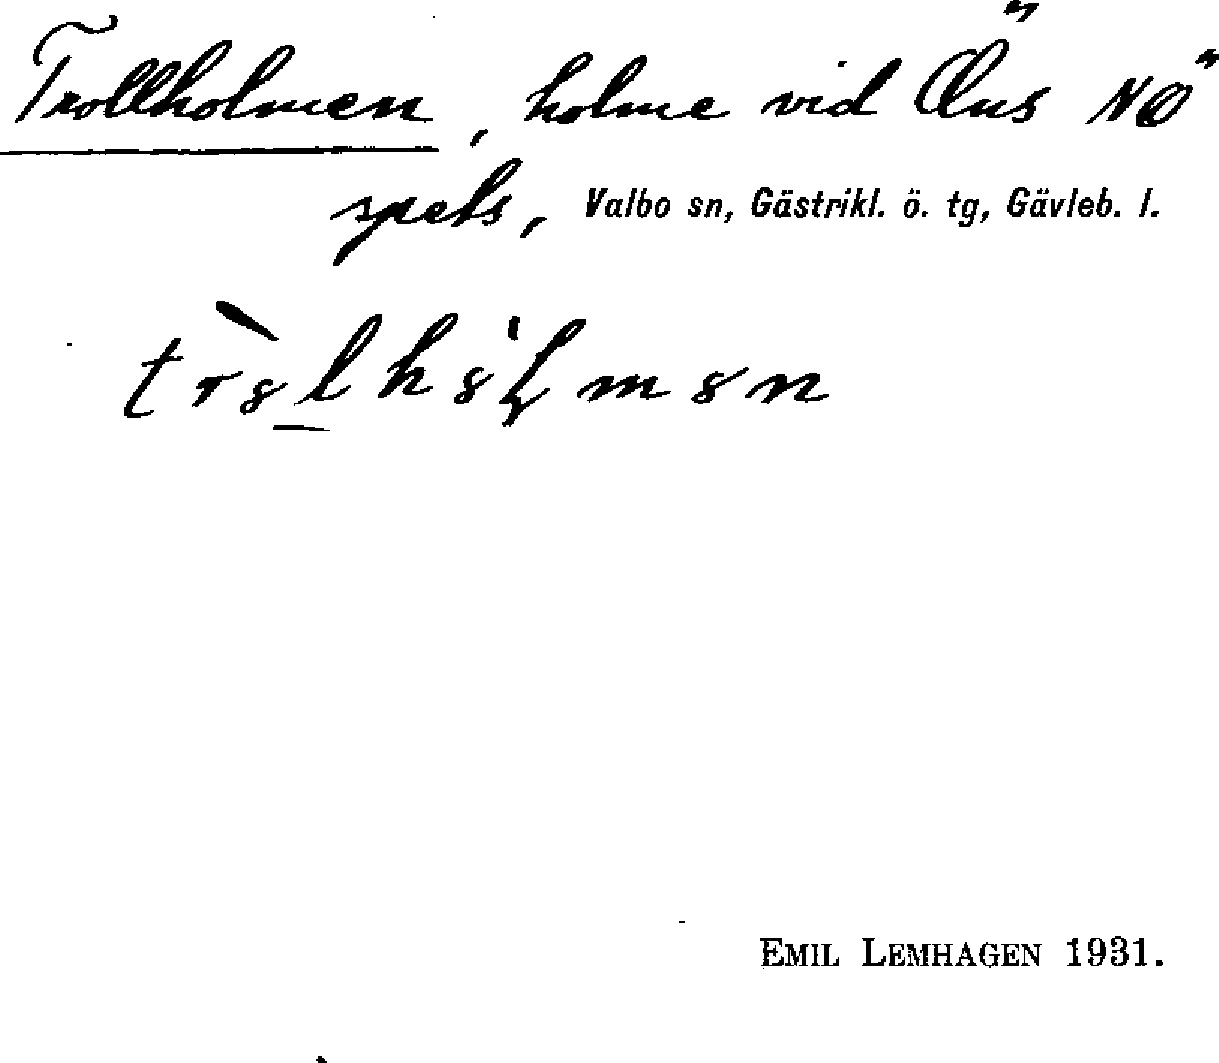 Trollholmen, holme vid Öns NÖ
spets, Valbo sn, Gästrikl. ö. tg, Gävleb. l.
EMIL LEMHAGEN 1931.